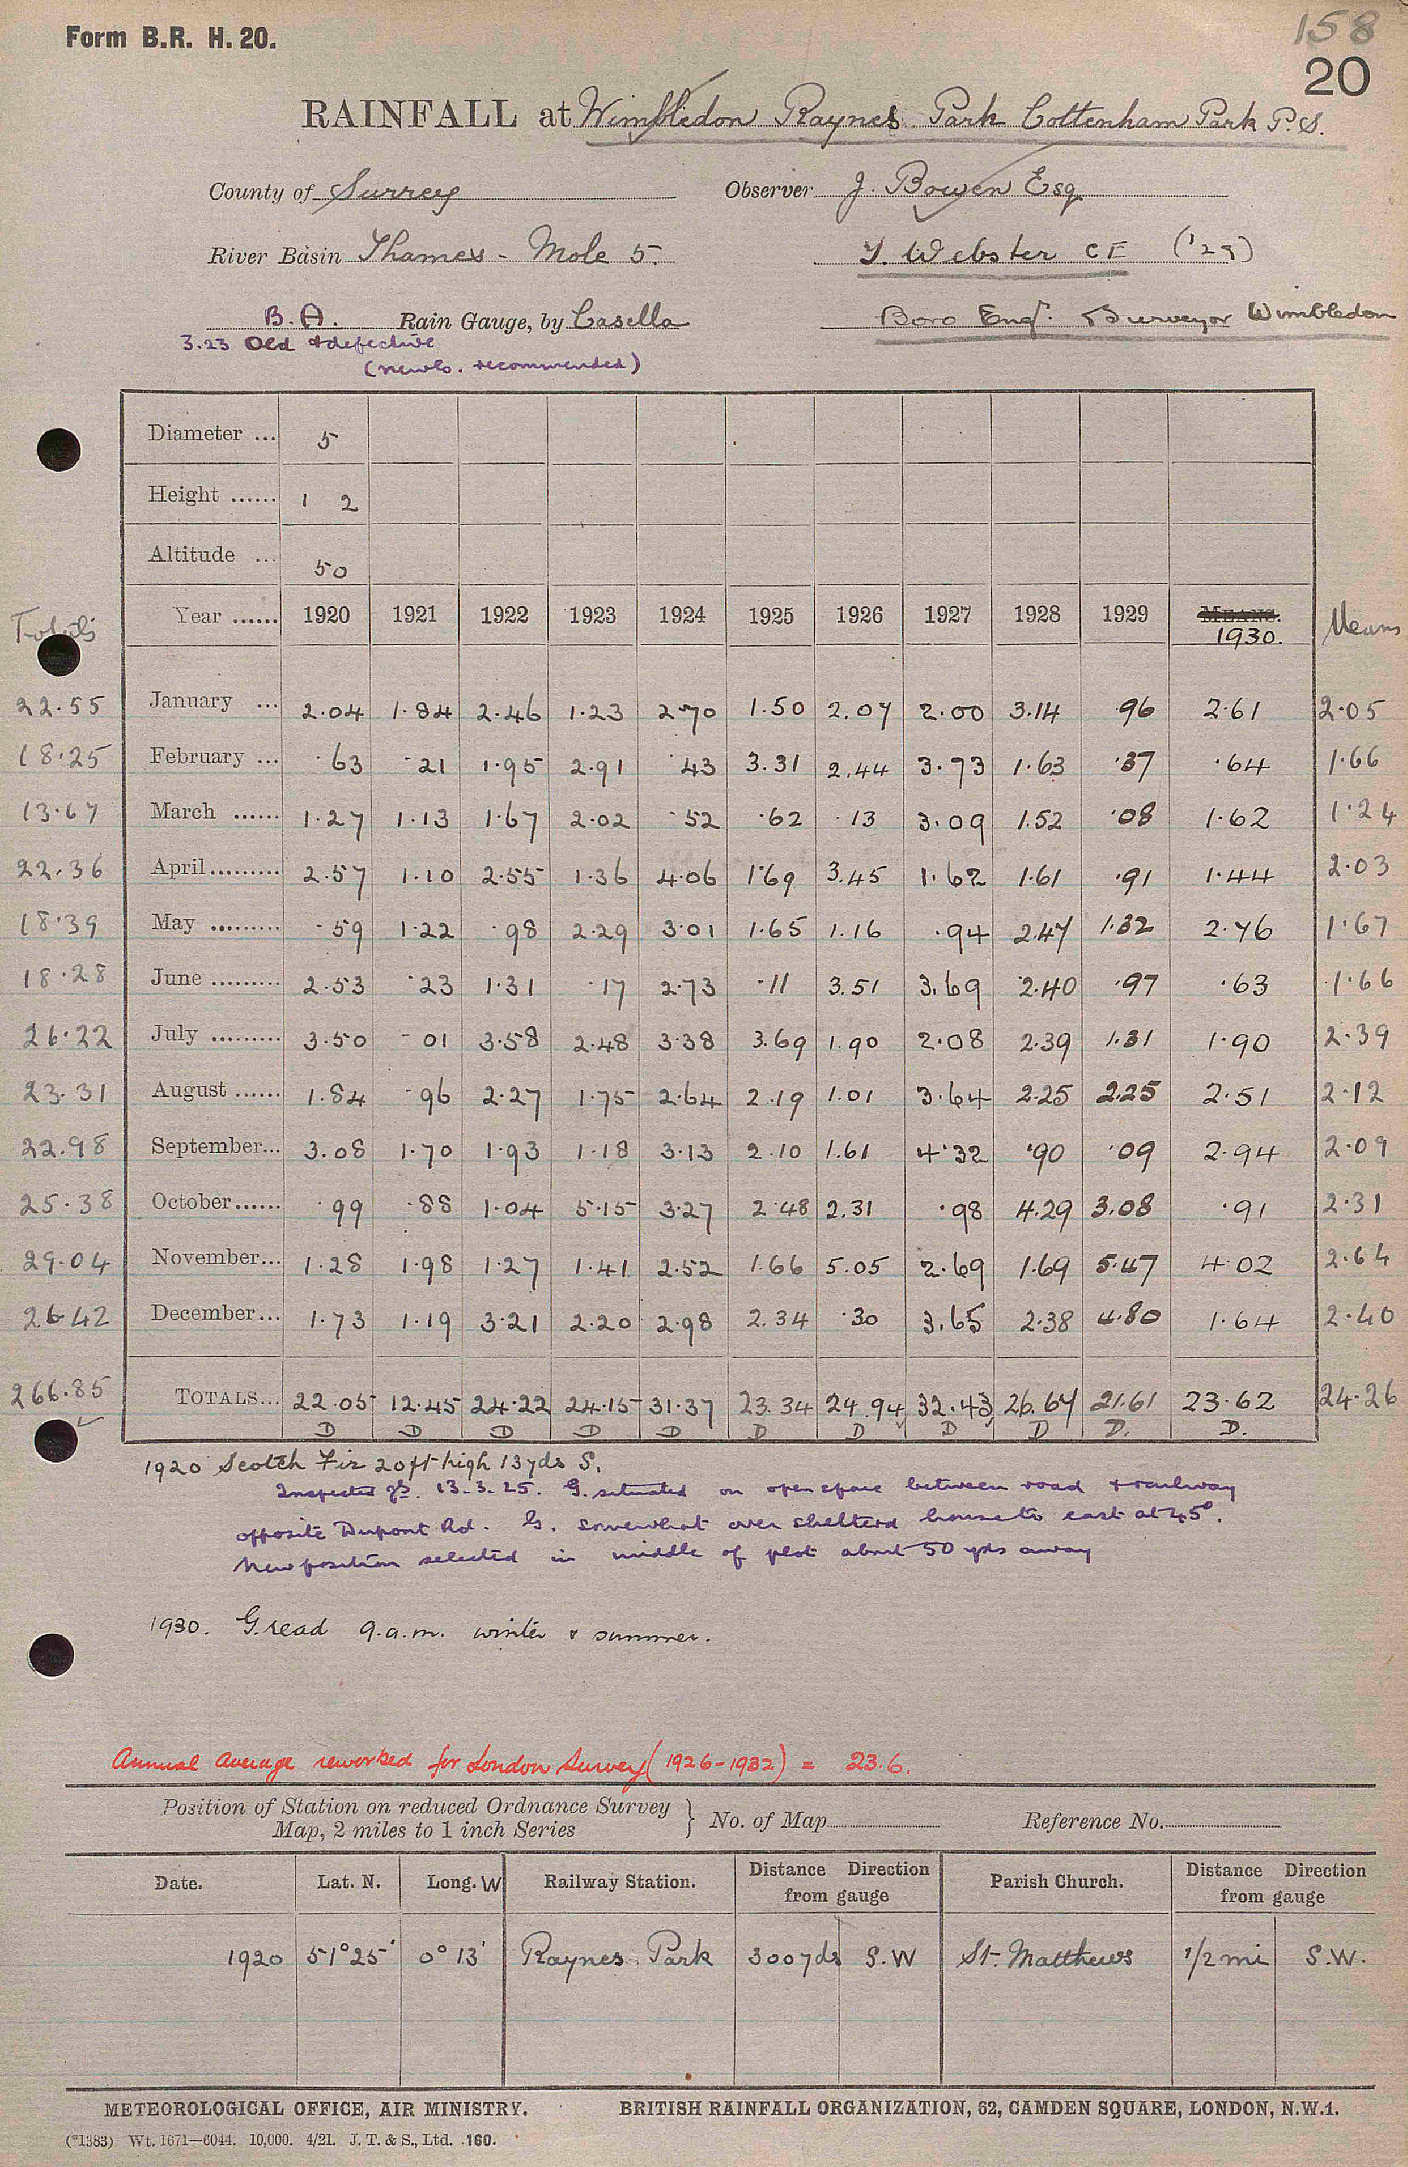 Form B.R. H. 20.
158
20
RAINFALL at Wimbledon Raynes Park Cottenham Park P.S.
County of Surrey Observer J. Bowen Esq
River Basin Thames - Mole 5. Webster CE ('28)
B.A. Rain Gauge, by Casella Boro Engr. & Surveyor Wimbledon
3.23 Old & defective
(new . recommended)
Diameter ... 5
Height ...... 1 2
Altitude ... 50
Totals Year ...... 1920 1921 1922 1923 1924 1925 1926 1927 1928 1929 MEANS. 1930. Means
22.55 January ... 2.04 1.84 2.46 1.23 2.70 1.50 2.07 2.00 3.14 .96 2.61 2.05
18.25 February ... .63 .21 1.95 2.91 .43 3.31 2.44 3.73 1.63 .37 .64 1.66
13.67 March ...... 1.27 1.13 1.67 2.02 .52 .62 .13 3.09 1.52 .08 1.62 1.24
22.36 April ......... 2.57 1.10 2.55 1.36 4.06 1.69 3.45 1.62 1.61 .91 1.44 2.03
18.39 May ......... .59 1.22 .98 2.29 3.01 1.65 1.16 .94 2.47 1.32 2.76 1.67
18.28 June ......... 2.53 .23 1.31 .17 2.73 .11 3.51 3.69 2.40 .97 .63 1.66
26.22 July ......... 3.50 .01 3.58 2.48 3.38 3.69 1.90 2.08 2.39 1.31 1.90 2.39
23.31 August ...... 1.84 .96 2.27 1.75 2.64 2.19 1.01 3.64 2.25 2.25 2.51 2.12
22.98 September... 3.08 1.70 1.93 1.18 3.13 2.10 1.61 4.32 .90 .09 2.94 2.09
25.38 October...... .99 .88 1.04 5.15 3.27 2.48 2.31 .98 4.29 3.08 .91 2.31
29.04 November... 1.28 1.98 1.27 1.41 2.52 1.66 5.05 2.69 1.69 5.47 4.02 2.64
26.42 December... 1.73 1.19 3.21 2.20 2.98 2.34 .30 3.65 2.38 4.80 1.64 2.40
266.85 TOTALS... 22.05 12.45 24.22 24.15 31.37 23.34 24.94 32.43 26.67 21.61 23.62 24.26
D D D D D D D D D D. D.
1920 Scotch Fir 20ft high 13yds S.
Inspected 13.3.25. G. situated on open space between road & railway
opposite Dupont Rd. G. somewhat over sheltered house to east at 45°.
New position selected in middle of plot about 50 yds away
1930. G. read 9.a.m. winter & summer.
Annual Average reworked for London Survey (1926-1932) = 23.6.
Position of Station on reduced Ordnance Survey
Map, 2 miles to 1 inch Series } No. of Map Reference No.
Date. Lat. N. Long. W Railway Station. Distance Direction from gauge Parish Church. Distance Direction from gauge
1920 51°25' 0°13' Raynes Park 300yds S.W St. Matthews 1/2 mi S.W.
METEOROLOGICAL OFFICE, AIR MINISTRY. BRITISH RAINFALL ORGANIZATION, 62, CAMDEN SQUARE, LONDON, N.W.1.
(*1383) Wt. 1671—6044. 10,000. 4/21. J. T. & S., Ltd. .160.